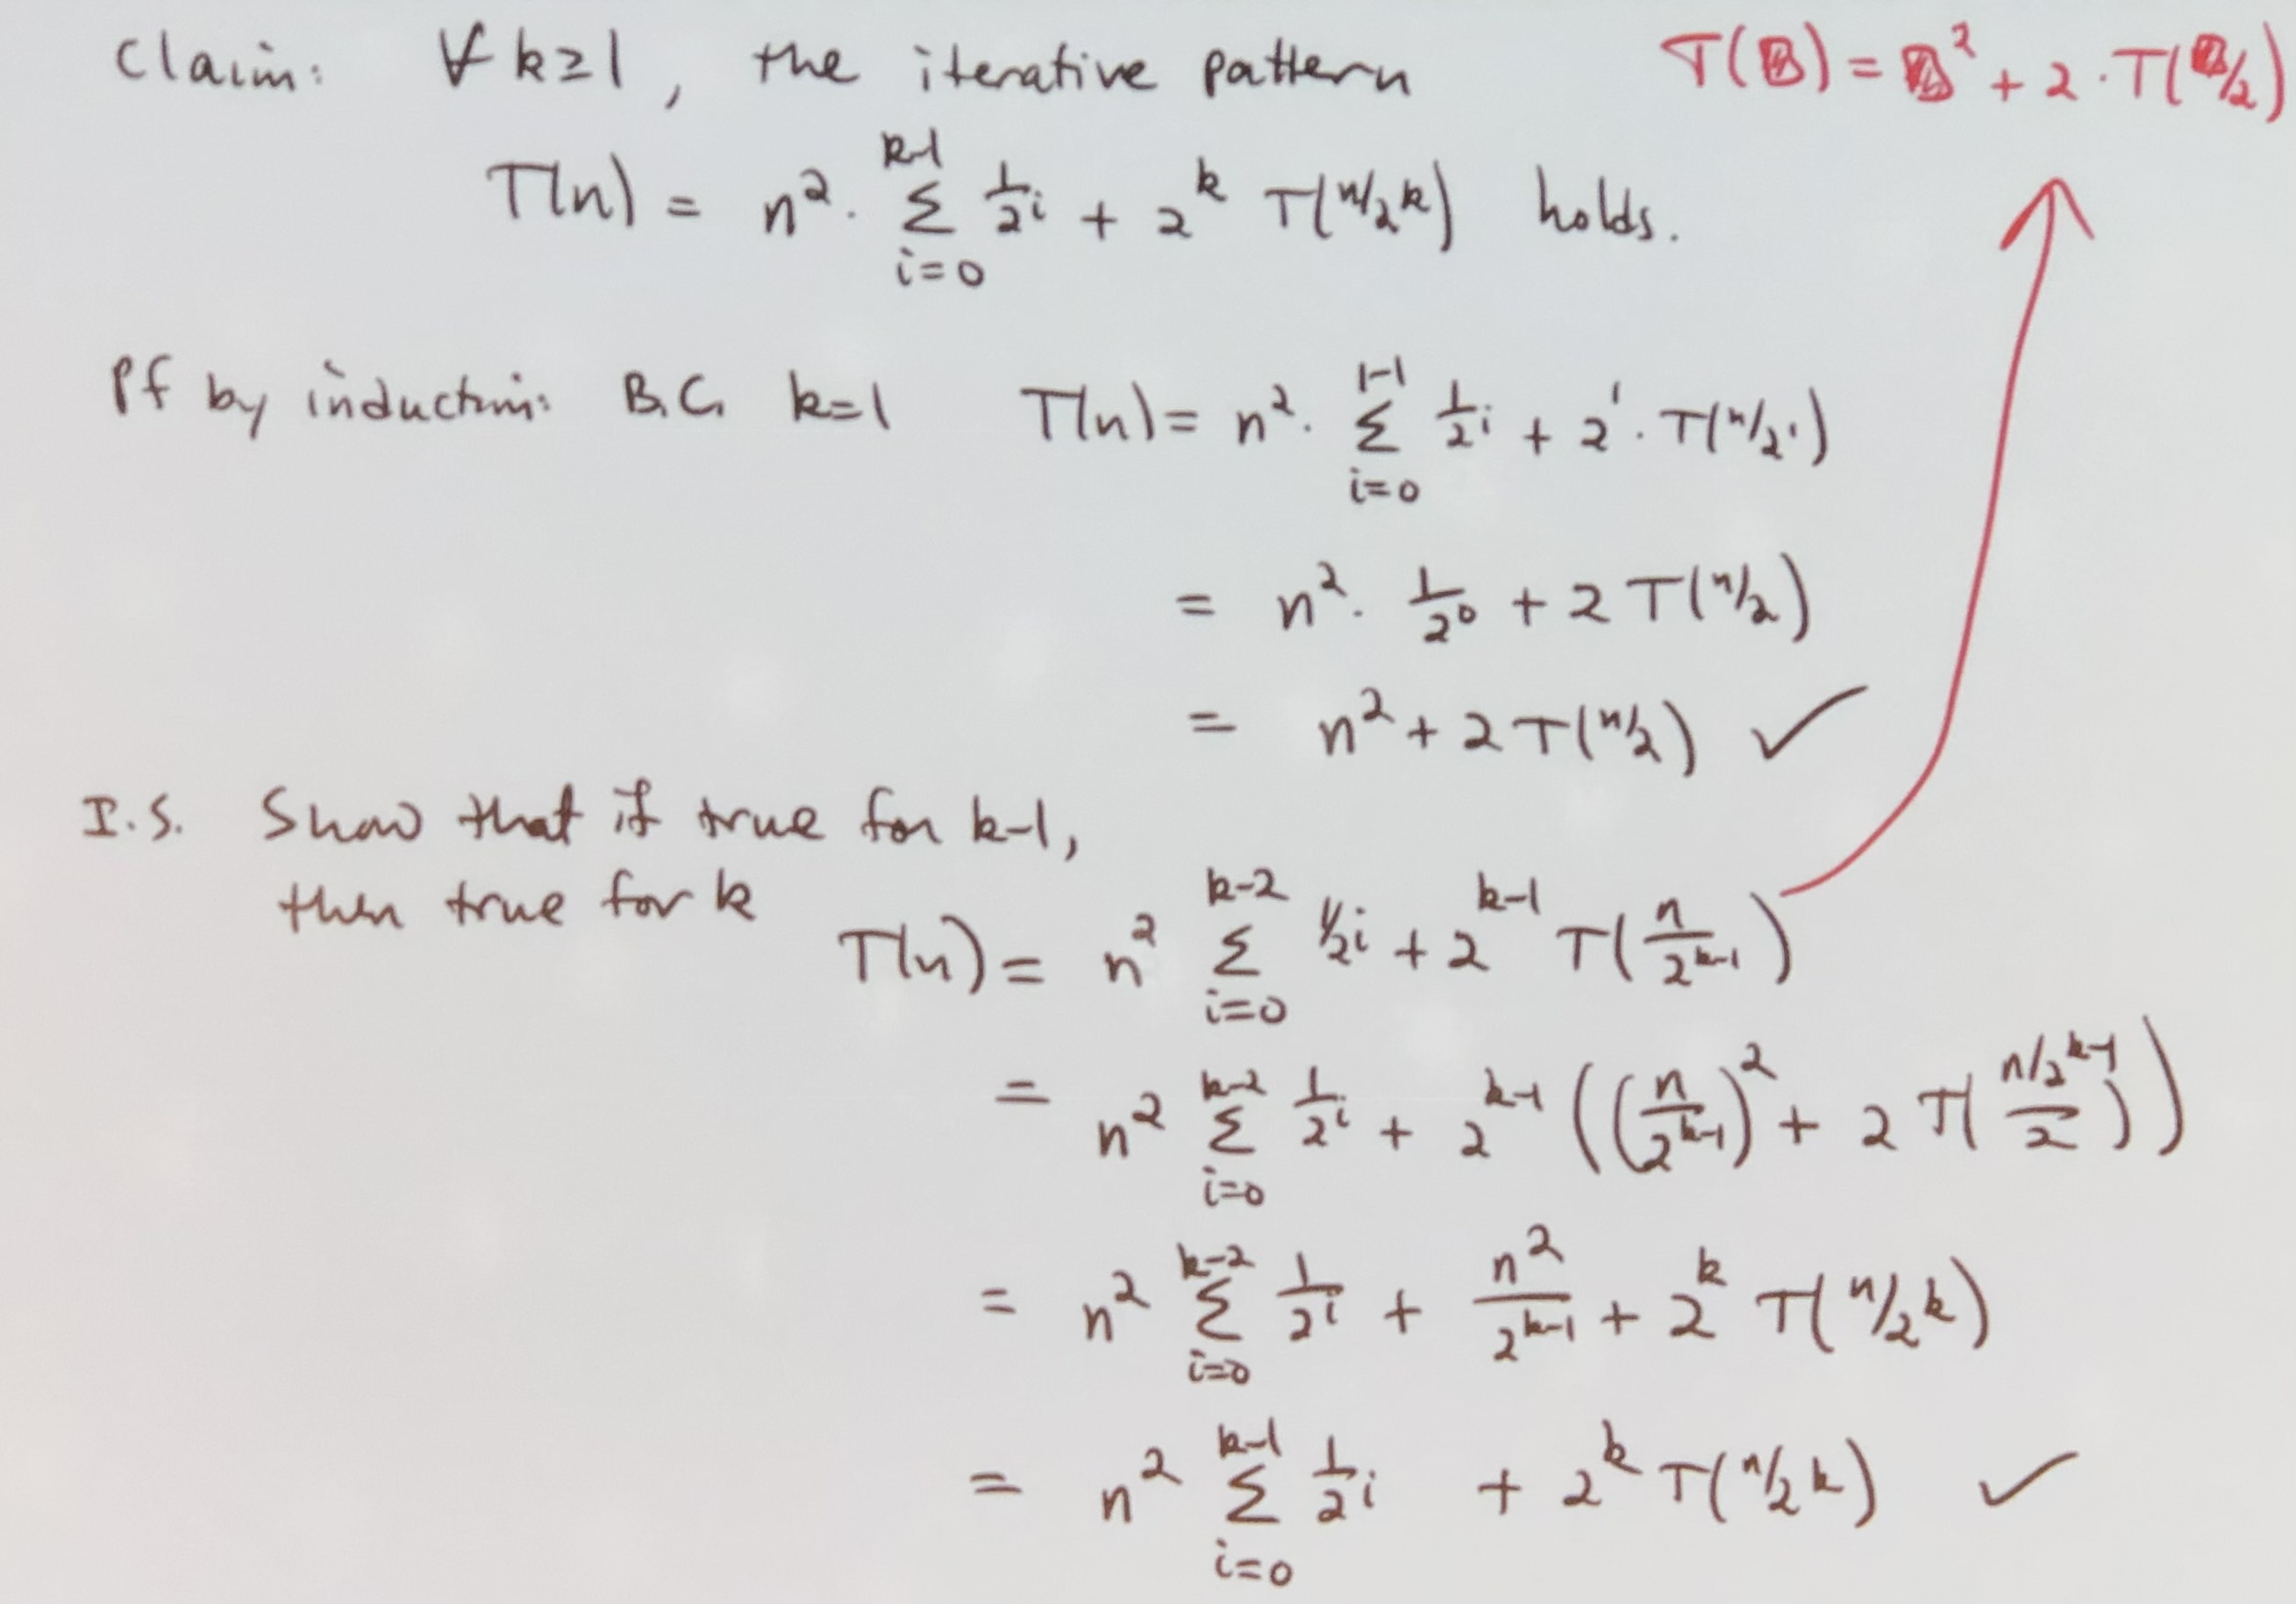 Claim: ∀ k≥1, the iterative pattern
T(n) = n² · Σ_{i=0}^{k-1} 1/2^i + 2^k T(n/2^k) holds.
T(▨) = ▨² + 2 · T(▨/2)
Pf by induction: B.C. k=1 T(n) = n² · Σ_{i=0}^{1-1} 1/2^i + 2^1 · T(n/2^1)
= n² · 1/2^0 + 2 T(n/2)
= n² + 2 T(n/2) ✓
I.S. Show that if true for k-1,
then true for k
T(n) = n² Σ_{i=0}^{k-2} 1/2^i + 2^{k-1} T(n/2^{k-1})
= n² Σ_{i=0}^{k-2} 1/2^i + 2^{k-1} ((n/2^{k-1})² + 2 T((n/2^{k-1})/2))
= n² Σ_{i=0}^{k-2} 1/2^i + n²/2^{k-1} + 2^k T(n/2^k)
= n² Σ_{i=0}^{k-1} 1/2^i + 2^k T(n/2^k) ✓